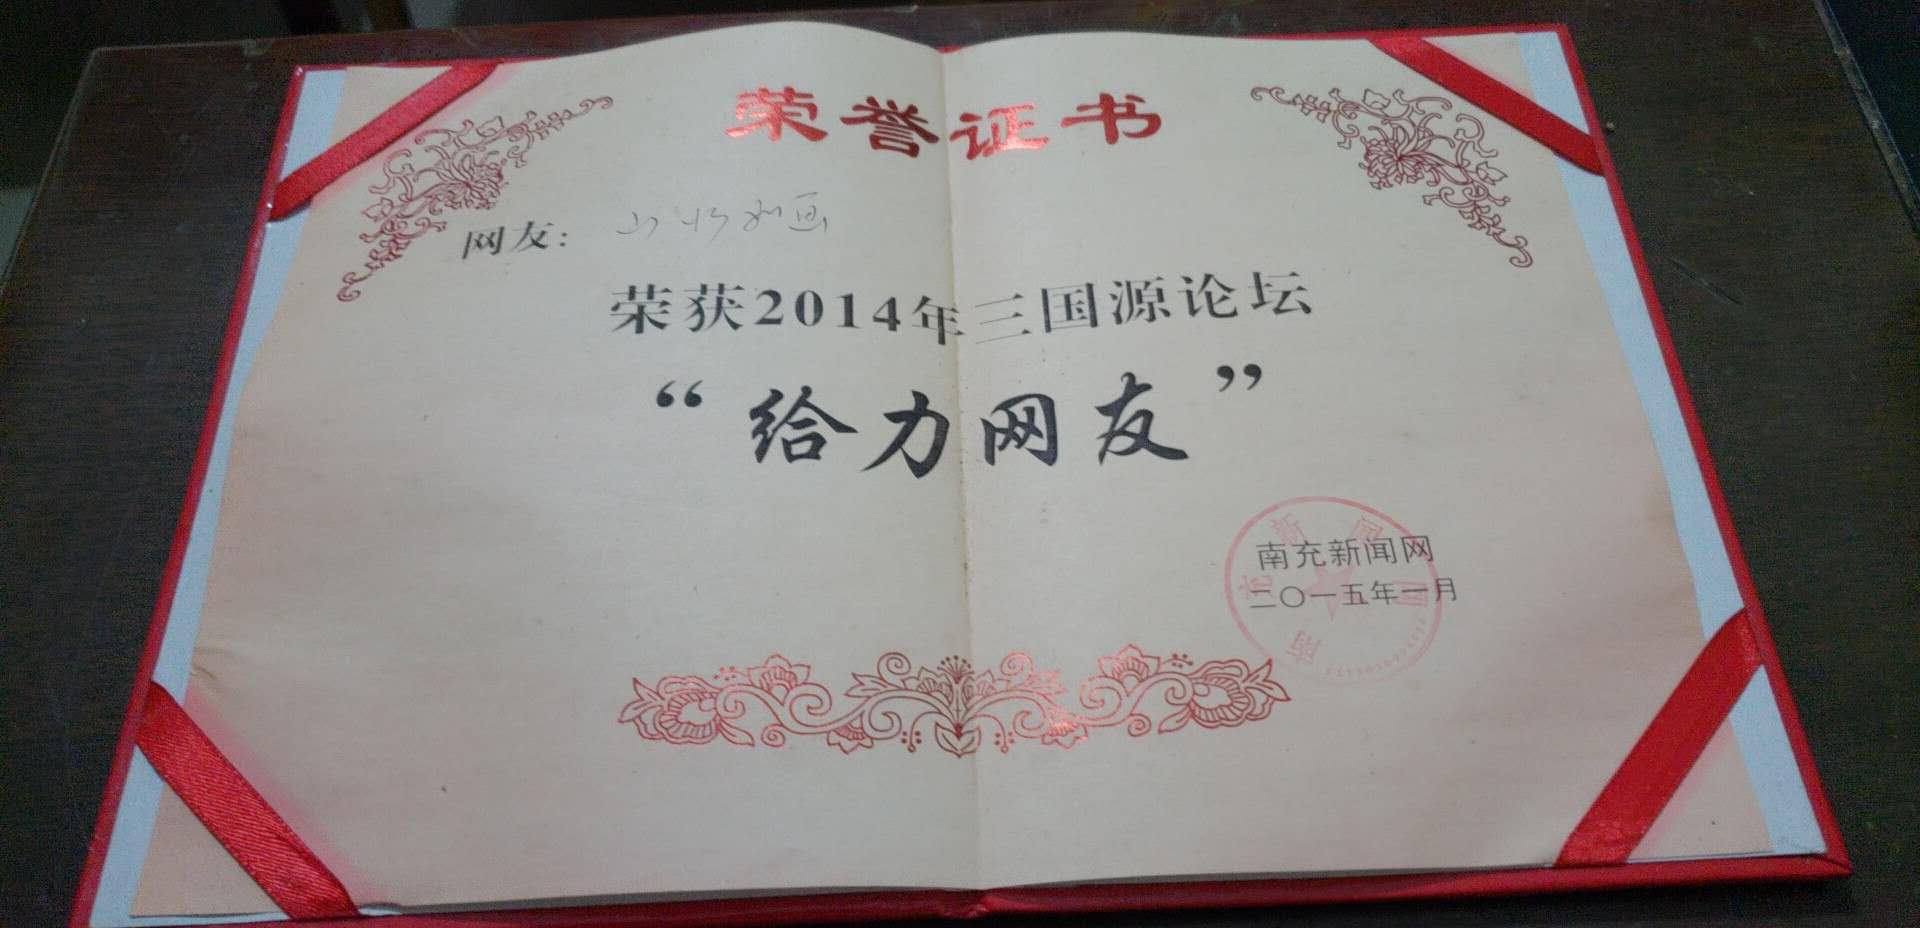 荣誉证书
网友：山水如画
荣获2014年三国源论坛
“给力网友”
南充新闻网
二〇一五年一月
南充新闻网